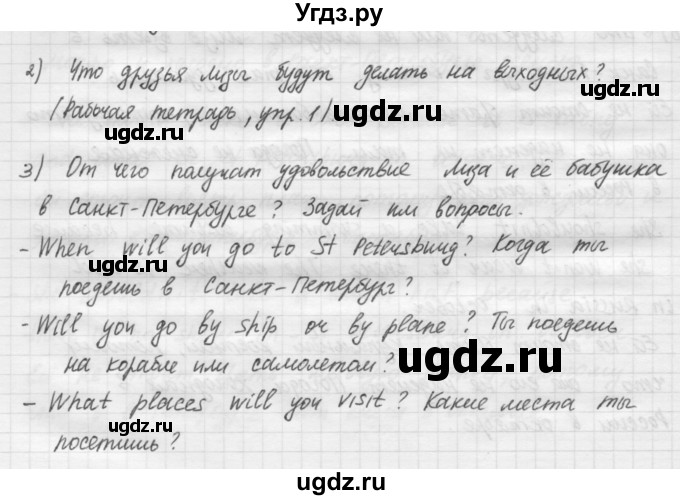 Угдз.ру
2) Что друзья Лизы будут делать на выходных?
(Рабочая тетрадь, упр. 1)
ugdz.ru ugdz.ru ugdz.ru
3) От чего получат удовольствие Лиза и её бабушка
в Санкт-Петербурге? Задай им вопросы.
ugdz.ru ugdz.ru
- When will you go to St Petersburg? Когда ты
ugdz.ru
поедешь в Санкт-Петербург?
- Will you go by ship or by plane? Ты поедешь
на корабле или самолетом?
ugdz.ru ugdz.ru
- What places will you visit? Какие места ты
посетишь?
ugdz.ru ugdz.ru
ugdz.ru